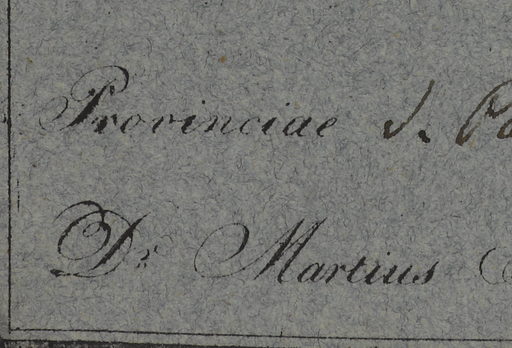 Provinciae S.
Dr Martius